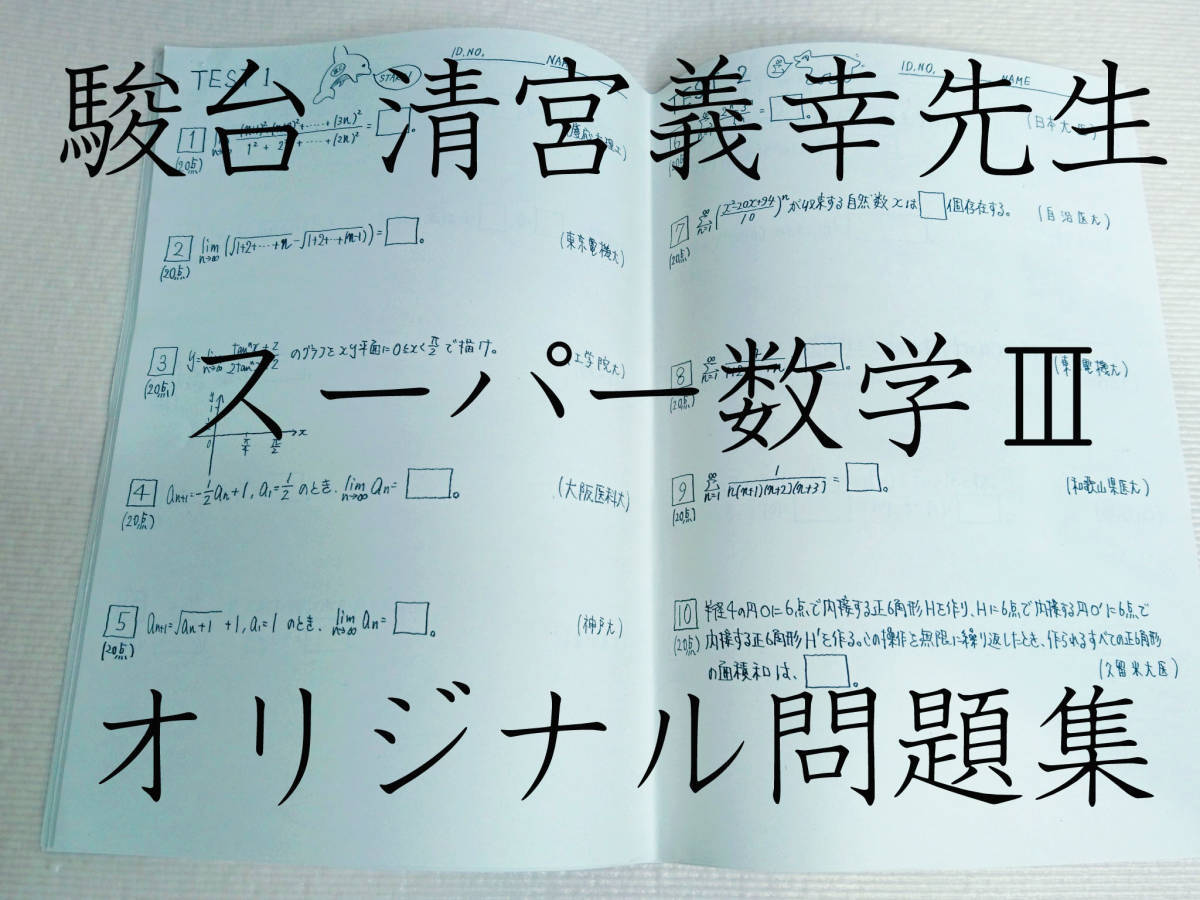 駿台 清宮義幸先生
スーパー数学Ⅲ
オリジナル問題集
TEST 1
START!
ID.NO.
1
(20点)
1² + 2² + ⋯⋯ + (2n)²
2
(20点)
lim n→∞ (√1+2+⋯+n − √1+2+⋯+(n-1)) = □。
(東京電機大)
3
(20点)
のグラフをxy平面に0≤x<π/2で描け。
(工学院大)
4
(20点)
an+1 = -1/2 an + 1, a1 = 1/2 のとき、lim n→∞ an = □。
(大阪医科大)
5
(20点)
an+1 = √an+1 + 1, a1 = 1 のとき、lim n→∞ an = □。
(神戸大)
ID.NO. NAME
(日本大医)
7
(20点)
∞Σn=1 (x²-20x+94/10)ⁿ が収束する自然数xは□個存在する。
(自治医大)
8
(20点)
(東京電機大)
9
(20点)
∞Σn=1 1/n(n+1)(n+2)(n+3) = □。
(和歌山県医大)
10
(20点)
半径4の円Oに6点で内接する正6角形Hを作り、Hに6点で内接する円O'に6点で
内接する正6角形H'を作る。この操作を無限に繰り返したとき、作られるすべての正6角形
の面積和は、□。
(久留米大医)